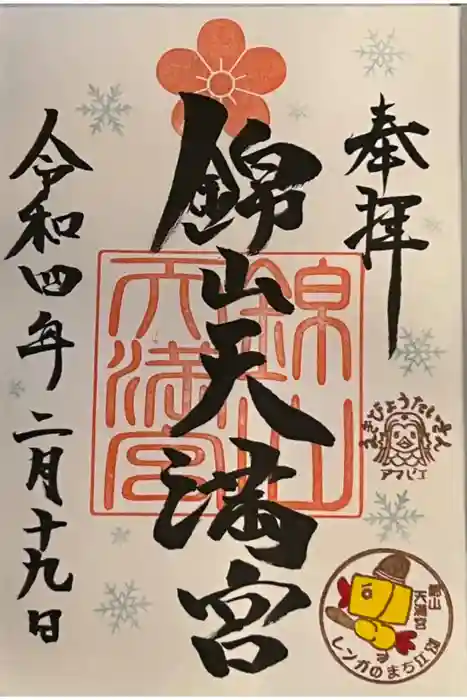 奉拝
錦山天満宮
令和四年二月十九日
錦山
天満宮
えきびょうたいさん
アマビエ
錦山
天満宮
レンガのまち江別